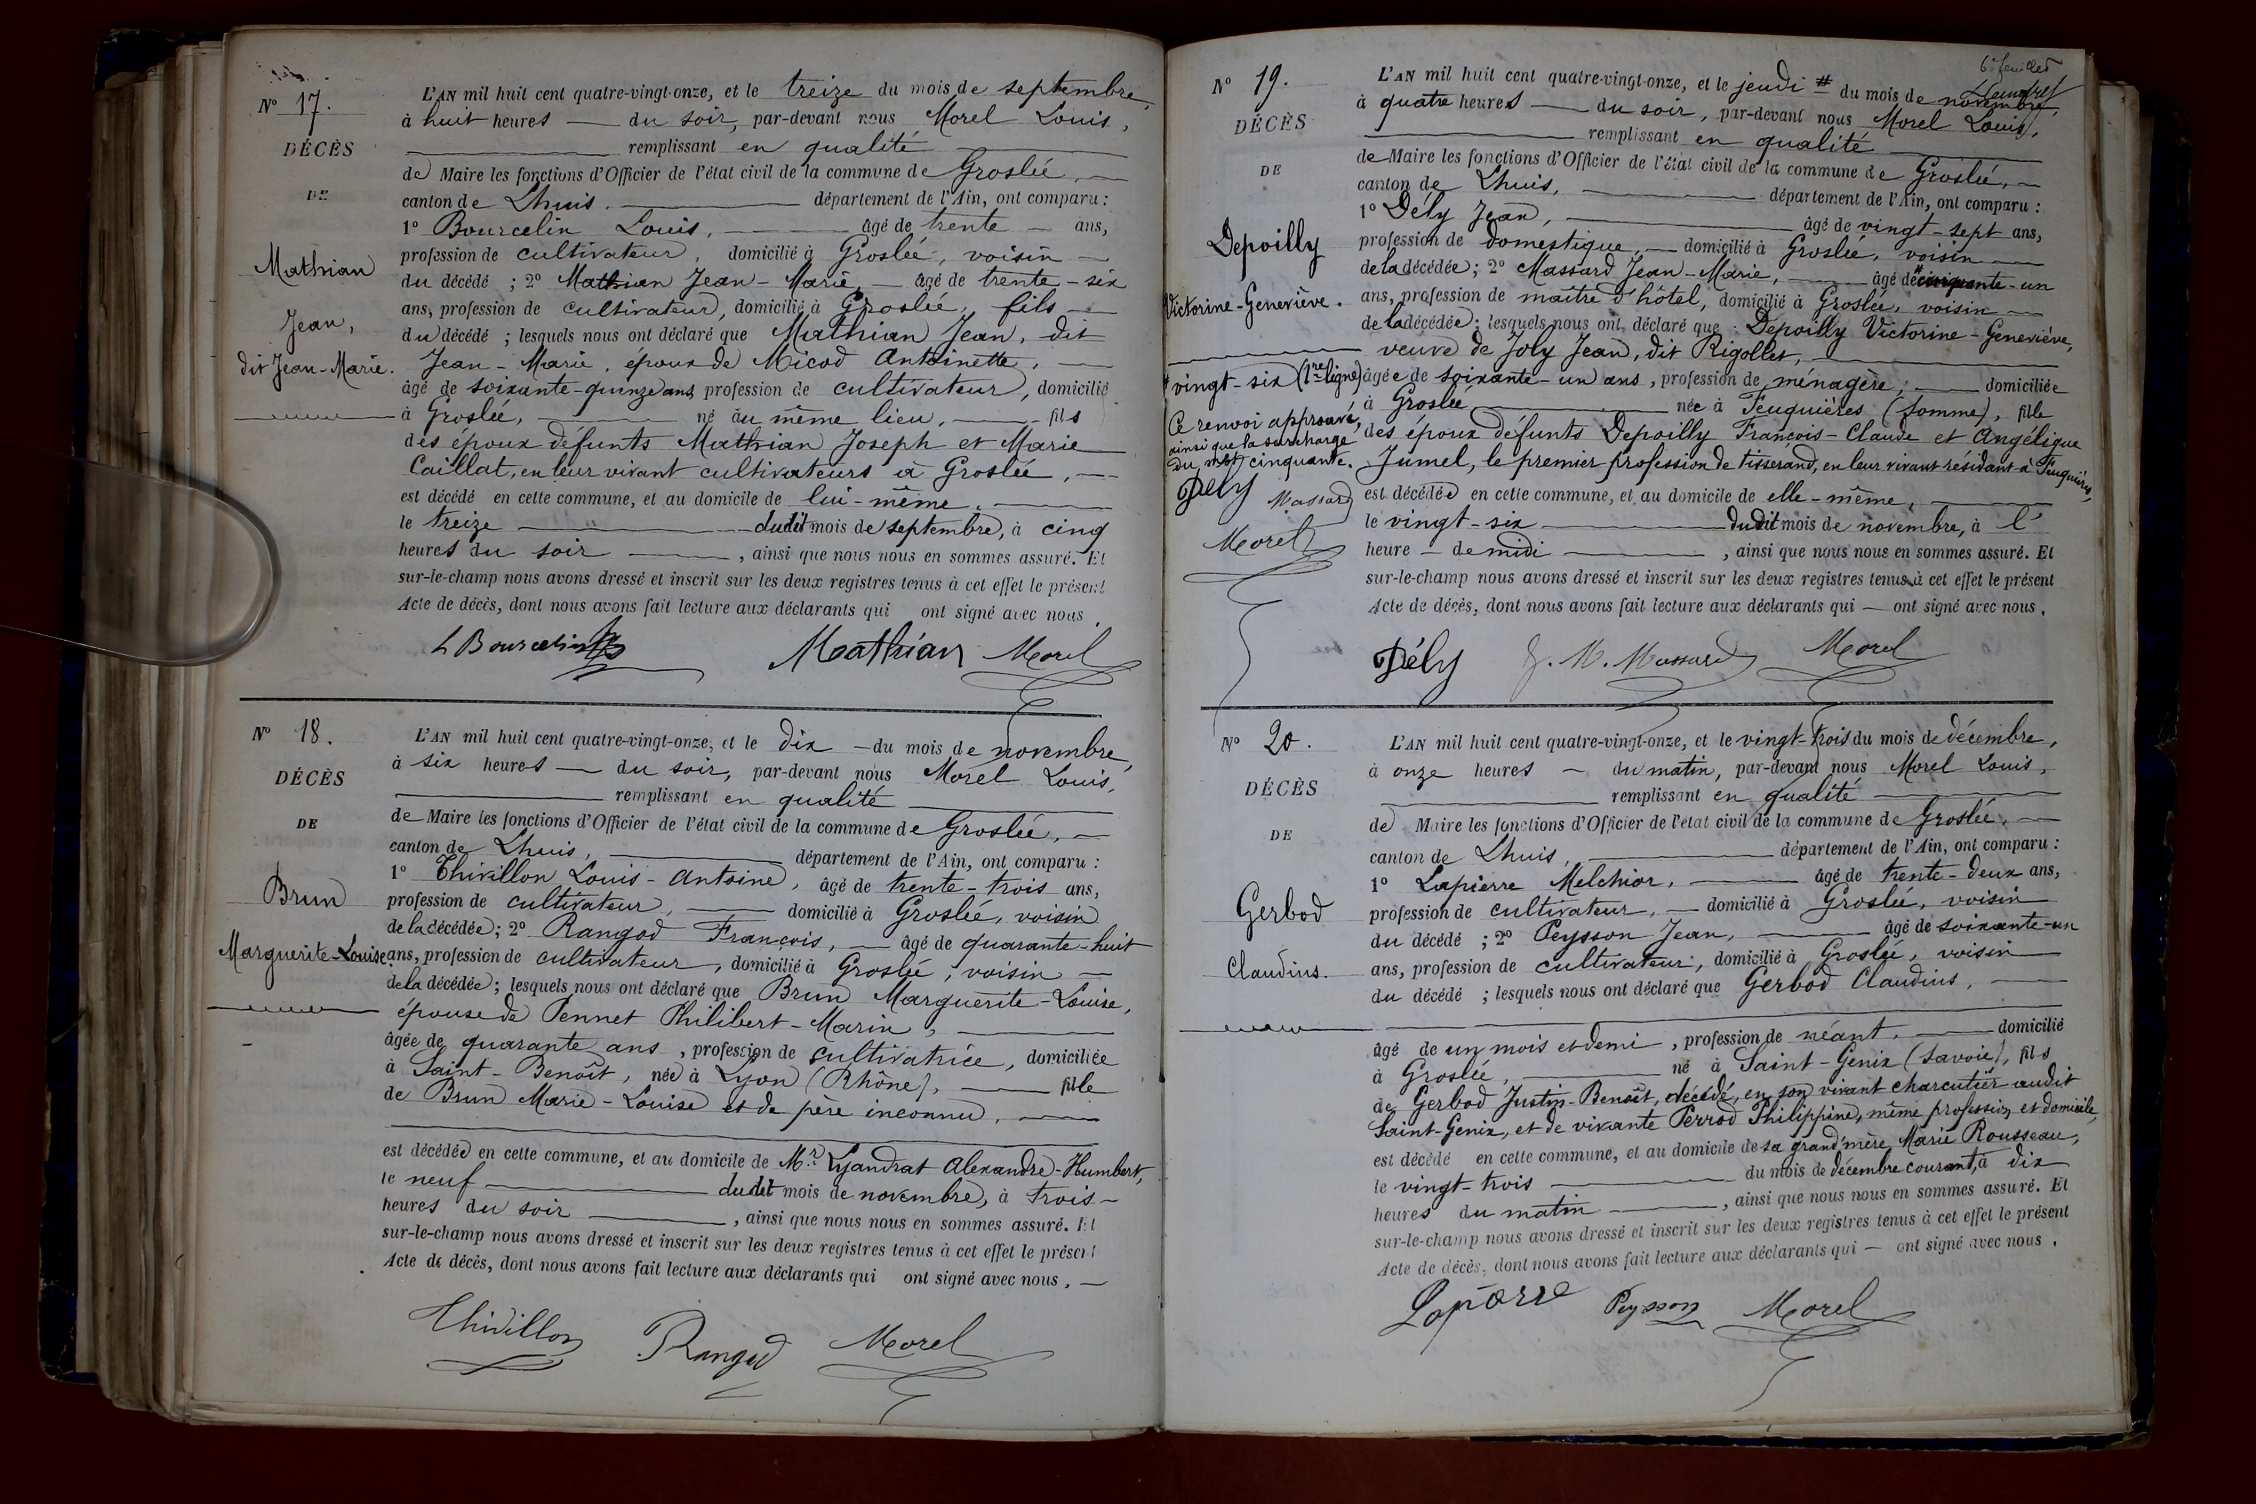 N° 17.
DÉCÈS
DE
Mathian
Jean,
dit Jean-Marie.
L'AN mil huit cent quatre-vingt-onze, et le treize du mois de septembre,
à huit heures du soir, par-devant nous Morel Louis,
remplissant en qualité
de Maire les fonctions d'Officier de l'état civil de la commune de Groslée,
canton de Lhuis. département de l'Ain, ont comparu :
1° Bourcelin Louis, âgé de trente ans,
profession de cultivateur, domicilié à Groslée, voisin
du décédé ; 2° Mathian Jean-Marie, âgé de trente-six
ans, profession de cultivateur, domicilié à Groslée, fils
du décédé ; lesquels nous ont déclaré que Mathian Jean, dit
Jean-Marie, époux de Micod Antoinette,
âgé de soixante-quinze ans, profession de cultivateur, domicilié
à Groslée, né au même lieu, fils
des époux défunts Mathian Joseph et Marie
Caillat, en leur vivant cultivateurs à Groslée,
est décédé en cette commune, et au domicile de lui-même,
le treize dudit mois de septembre, à cinq
heures du soir, ainsi que nous nous en sommes assuré. Et
sur-le-champ nous avons dressé et inscrit sur les deux registres tenus à cet effet le présent
Acte de décès, dont nous avons fait lecture aux déclarants qui ont signé avec nous.
L Bourcelin Mathian Morel
N° 18.
DÉCÈS
DE
Brun
Marguerite-Louise.
L'AN mil huit cent quatre-vingt-onze, et le dix du mois de novembre,
à six heures du soir, par-devant nous Morel Louis,
remplissant en qualité
de Maire les fonctions d'Officier de l'état civil de la commune de Groslée,
canton de Lhuis, département de l'Ain, ont comparu :
1° Thivillon Louis-Antoine, âgé de trente-trois ans,
profession de cultivateur, domicilié à Groslée, voisin
de la décédée ; 2° Rangod François, âgé de quarante-huit
ans, profession de cultivateur, domicilié à Groslée, voisin
de la décédée ; lesquels nous ont déclaré que Brun Marguerite-Louise,
épouse de Pennet Philibert-Marin,
âgée de quarante ans, profession de cultivatrice, domiciliée
à Saint-Benoît, née à Lyon (Rhône), fille
de Brun Marie-Louise et de père inconnu,
est décédée en cette commune, et au domicile de Mr. Lyandrat Alexandre-Humbert,
le neuf dudit mois de novembre, à trois
heures du soir, ainsi que nous nous en sommes assuré. Et
sur-le-champ nous avons dressé et inscrit sur les deux registres tenus à cet effet le présent
Acte de décès, dont nous avons fait lecture aux déclarants qui ont signé avec nous.
Thivillon Rangod Morel
6e feuillet
N° 19.
DÉCÈS
DE
Depoilly
Victorine-Geneviève.
# vingt-six (1re ligne)
Ce renvoi approuvé,
ainsi que la surcharge
du mot cinquante.
Dély Massard
Morel
L'AN mil huit cent quatre-vingt-onze, et le jeudi # du mois de novembre,
à quatre heures du soir, par-devant nous Morel Louis,
remplissant en qualité
de Maire les fonctions d'Officier de l'état civil de la commune de Groslée,
canton de Lhuis, département de l'Ain, ont comparu :
1° Dély Jean, âgé de vingt-sept ans,
profession de domestique, domicilié à Groslée, voisin
de la décédée ; 2° Massard Jean-Marie, âgé de cinquante-un
ans, profession de maître d'hôtel, domicilié à Groslée, voisin
de la décédée ; lesquels nous ont déclaré que Depoilly Victorine-Geneviève,
veuve de Joly Jean, dit Rigollet,
âgée de soixante-un ans, profession de ménagère, domiciliée
à Groslée née à Feuquières (Somme), fille
des époux défunts Depoilly François-Claude et Angélique
Jumel, le premier profession de tisserand, en leur vivant résidant à Feuquières,
est décédée en cette commune, et au domicile de elle-même,
le vingt-six dudit mois de novembre, à l'
heure de midi, ainsi que nous nous en sommes assuré. Et
sur-le-champ nous avons dressé et inscrit sur les deux registres tenus à cet effet le présent
Acte de décès, dont nous avons fait lecture aux déclarants qui ont signé avec nous.
Dély J. M. Massard Morel
N° 20.
DÉCÈS
DE
Gerbod
Claudius.
L'AN mil huit cent quatre-vingt-onze, et le vingt-trois du mois de décembre,
à onze heures du matin, par-devant nous Morel Louis,
remplissant en qualité
de Maire les fonctions d'Officier de l'état civil de la commune de Groslée,
canton de Lhuis, département de l'Ain, ont comparu :
1° Lapierre Melchior, âgé de trente-deux ans,
profession de cultivateur, domicilié à Groslée, voisin
du décédé ; 2° Peysson Jean, âgé de soixante-un
ans, profession de cultivateur, domicilié à Groslée, voisin
du décédé ; lesquels nous ont déclaré que Gerbod Claudius,
âgé de un mois et demi, profession de néant, domicilié
à Groslée, né à Saint-Genix (Savoie), fils
de Gerbod Justin-Benoît, décédé, en son vivant charcutier audit
Saint-Genix, et de vivante Perrod Philippine, même profession et domicile,
est décédé en cette commune, et au domicile de sa grand'mère Marie Rousseau,
le vingt-trois du mois de décembre courant, à dix
heures du matin, ainsi que nous nous en sommes assuré. Et
sur-le-champ nous avons dressé et inscrit sur les deux registres tenus à cet effet le présent
Acte de décès, dont nous avons fait lecture aux déclarants qui ont signé avec nous.
Lapierre Peysson Morel